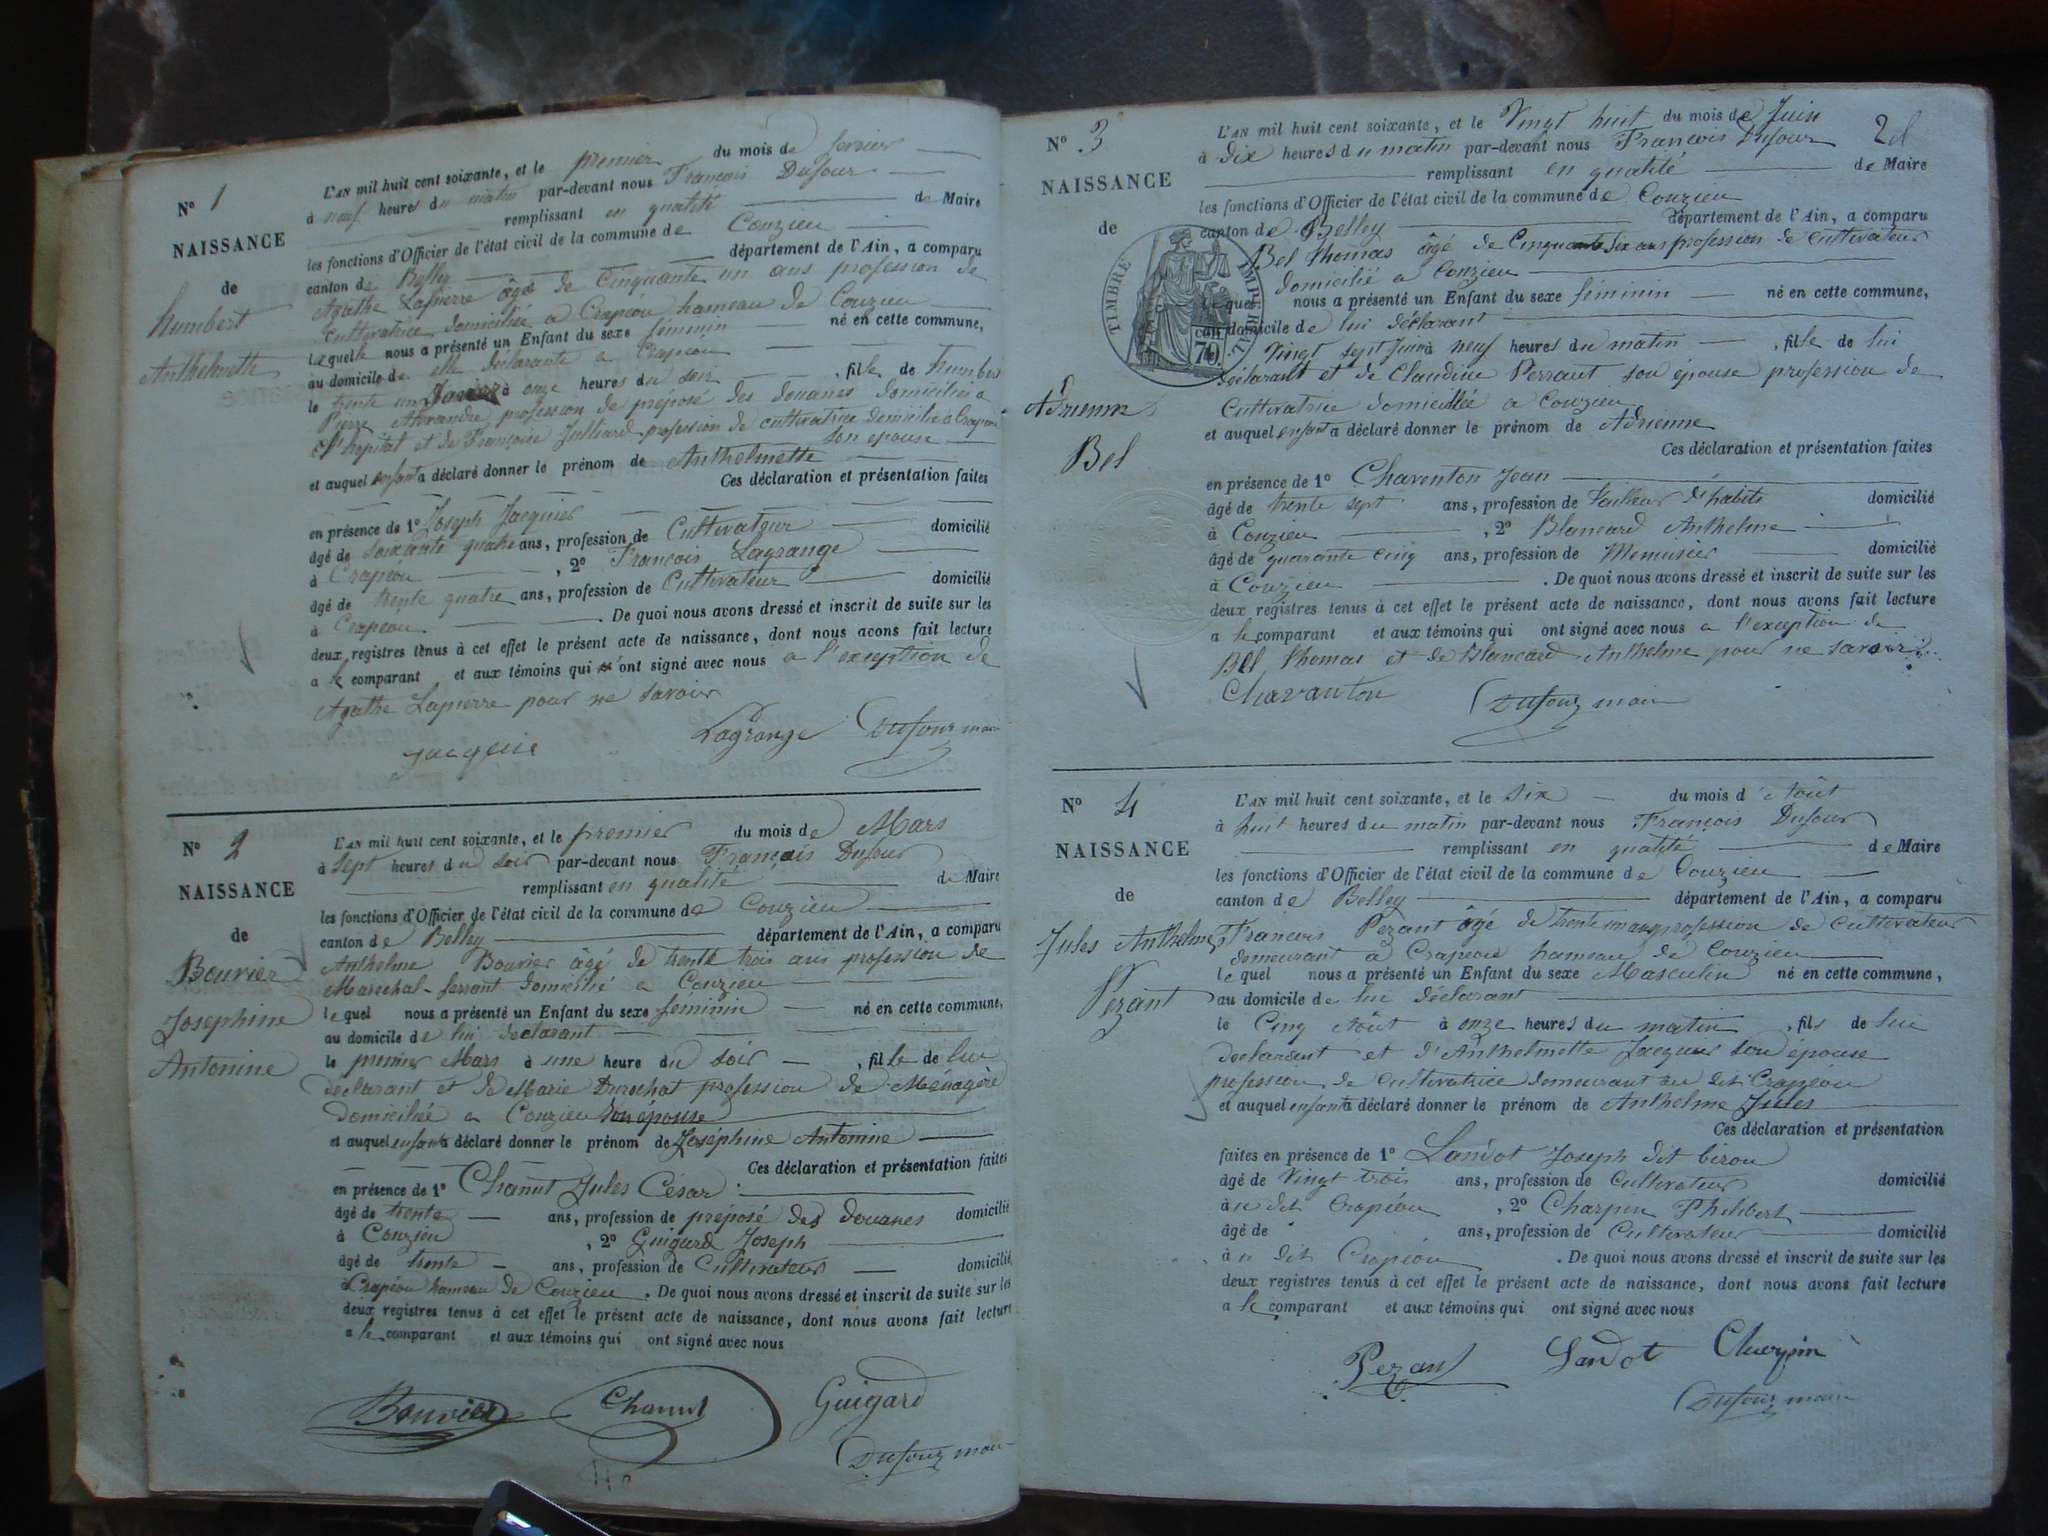 N° 1
NAISSANCE
de
humbert
Anthelmette
L'AN mil huit cent soixante, et le premier du mois de fevrier
à neuf heures du matin par-devant nous François Dufour
remplissant en qualité de Maire
les fonctions d'Officier de l'état civil de la commune de Conzieu
canton de Belley département de l'Ain, a comparu
Agathe Lapierre âgé de Cinquante un ans profession de
Cultivatrice domiciliée a Crapéou hameau de Conzieu
lequelle nous a présenté un Enfant du sexe féminin né en cette commune,
au domicile de elle déclarante a Crapéou
le trente un Janvier à onze heures du soir, fille de humbert
Pierre profession de préposé des douanes domicilié a
l'hopital et de Françoise Julliard profession de cultivatrice domicilié a Crapéou
son épouse
et auquel enfant a déclaré donner le prénom de Anthelmette
Ces déclaration et présentation faites
en présence de 1° Joseph Jacquier
âgé de soixante quatre ans, profession de Cultivateur domicilié
à Crapéou, 2° François Lagrange
âgé de trente quatre ans, profession de Cultivateur domicilié
à Crapéou. De quoi nous avons dressé et inscrit de suite sur les
deux registres tenus à cet effet le présent acte de naissance, dont nous avons fait lecture
a le comparant et aux témoins qui ont signé avec nous a l'exception de
Agathe Lapierre pour ne savoir
Lagrange Dufour maire
N° 2
NAISSANCE
de
Bouvier
Josephine
Antonine
L'AN mil huit cent soixante, et le premier du mois de Mars
à sept heures du soir par-devant nous François Dufour
remplissant en qualité de Maire
les fonctions d'Officier de l'état civil de la commune de Conzieu
canton de Belley département de l'Ain, a comparu
Anthelme Bouvier âgé de trente trois ans profession de
Marechal-ferrant domicilié a Conzieu
lequel nous a présenté un Enfant du sexe féminin né en cette commune,
au domicile de lui déclarant
le premier Mars à une heure du soir, fille de lui
déclarant et de Marie Durochat profession de Ménagère
domiciliée a Conzieu son épouse
et auquel enfant a déclaré donner le prénom de Joséphine Antonine
Ces déclaration et présentation faites
en présence de 1° Chanut Jules César
âgé de trente ans, profession de préposé des douanes domicilié
à Conzieu, 2° Guigard Joseph
âgé de trente ans, profession de Cultivateur domicilié
à Crapéou hameau de Conzieu. De quoi nous avons dressé et inscrit de suite sur les
deux registres tenus à cet effet le présent acte de naissance, dont nous avons fait lecture
a le comparant et aux témoins qui ont signé avec nous
Bouvier Chanut Guigard
Dufour maire
2
N° 3
NAISSANCE
de
Adrienne
Bel
TIMBRE IMPERIAL
70
L'AN mil huit cent soixante, et le Vingt huit du mois de Juin
à dix heures du matin par-devant nous Francois Dufour
remplissant en qualité de Maire
les fonctions d'Officier de l'état civil de la commune de Conzieu
canton de Belley département de l'Ain, a comparu
Bel thomas âgé de Cinquante six ans profession de cultivateur
domicilié a Conzieu
Lequel nous a présenté un Enfant du sexe féminin né en cette commune,
au domicile de lui déclarant
Vingt sept Juin à neuf heures du matin, fille de lui
déclarant et de Claudine Perraut son épouse profession de
Cultivatrice domiciliée a Conzieu
et auquel enfant a déclaré donner le prénom de Adrienne
Ces déclaration et présentation faites
en présence de 1° Charenton Jean
âgé de trente sept ans, profession de tailleur d'habits domicilié
à Conzieu, 2° Blancard Anthelme
âgé de quarante cinq ans, profession de Menuisier domicilié
à Conzieu. De quoi nous avons dressé et inscrit de suite sur les
deux registres tenus à cet effet le présent acte de naissance, dont nous avons fait lecture
a le comparant et aux témoins qui ont signé avec nous a l'exception de
Bel thomas et de Blancard Anthelme pour ne savoir
Charanton Dufour maire
N° 4
NAISSANCE
de
Jules Anthelme
Pezant
L'AN mil huit cent soixante, et le six du mois d'Août
à huit heures du matin par-devant nous François Dufour
remplissant en qualité de Maire
les fonctions d'Officier de l'état civil de la commune de Conzieu
canton de Belley département de l'Ain, a comparu
Francois Pezant âgé de trente un ans profession de cultivateur
demeurant à Crapéou hameau de Conzieu
lequel nous a présenté un Enfant du sexe Masculin né en cette commune,
au domicile de lui déclarant
le Cinq Août à onze heures du matin, fils de lui
déclarant et d'Anthelmette Jacquier son épouse
profession de cultivatrice demeurant au dit Crapéou
et auquel enfant a déclaré donner le prénom de Anthelme Jules
Ces déclaration et présentation
faites en présence de 1° Landot Joseph dit
âgé de Vingt trois ans, profession de Cultivateur domicilié
à u dit Crapéou, 2° Charpin Philibert
âgé de ans, profession de Cultivateur domicilié
à u dit Crapéou. De quoi nous avons dressé et inscrit de suite sur les
deux registres tenus à cet effet le présent acte de naissance, dont nous avons fait lecture
a le comparant et aux témoins qui ont signé avec nous
Pezant Landot Charpin
Dufour maire